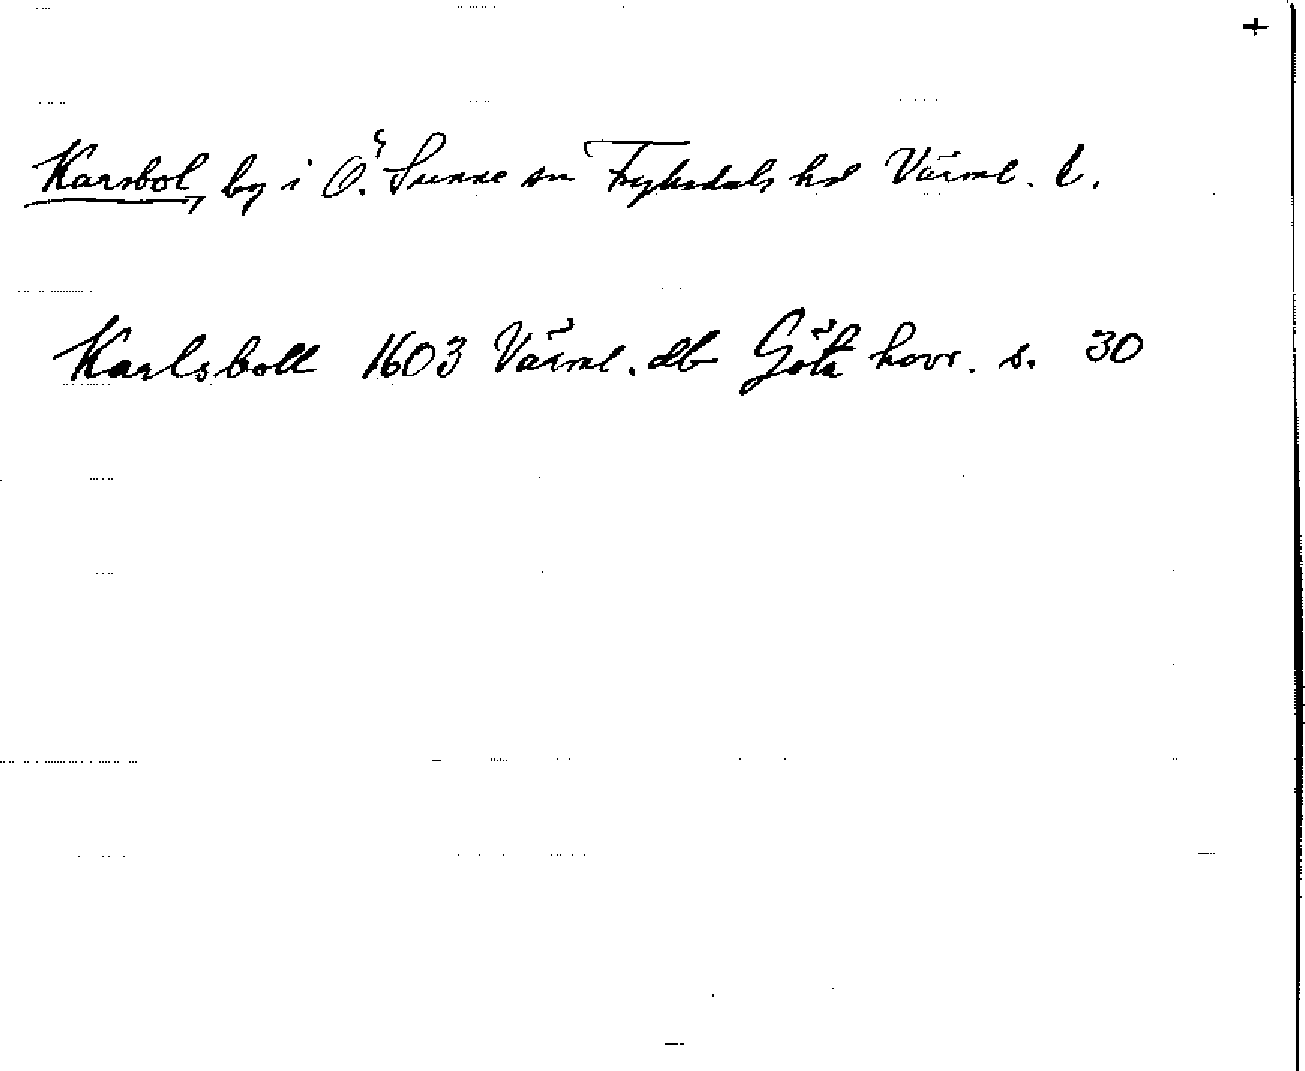 +
Karsbol, by i Ö. Sunne sn Fryksdals hd Värml. l.
Karlsboll 1603 Värml. db Göta hovr. s. 30